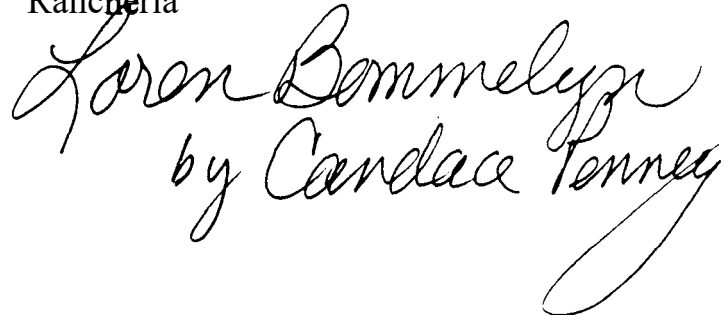 Rancheria
Loren Bommelyn
by Candace Penney